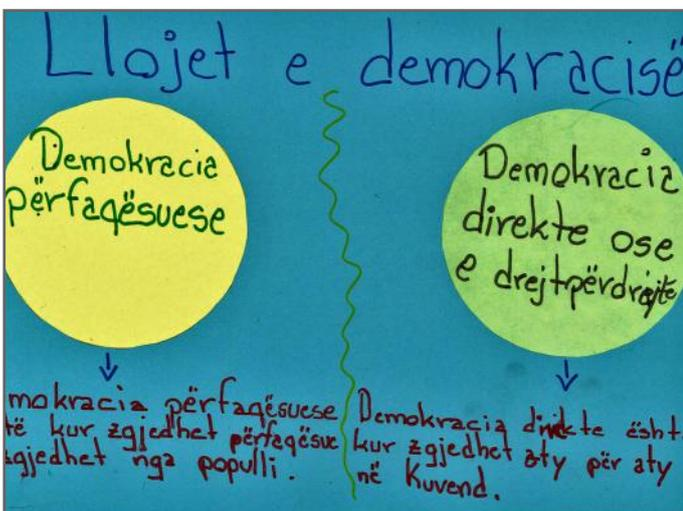 Llojet e demokracisë
Demokracia
përfaqësuese
mokracia përfaqësuese
të kur zgjedhet përfaqësue
zgjedhet nga populli.
Demokracia
direkte ose
e drejtpërdrejtë
Demokracia direkte ësht
kur zgjedhet aty për aty
në Kuvend.